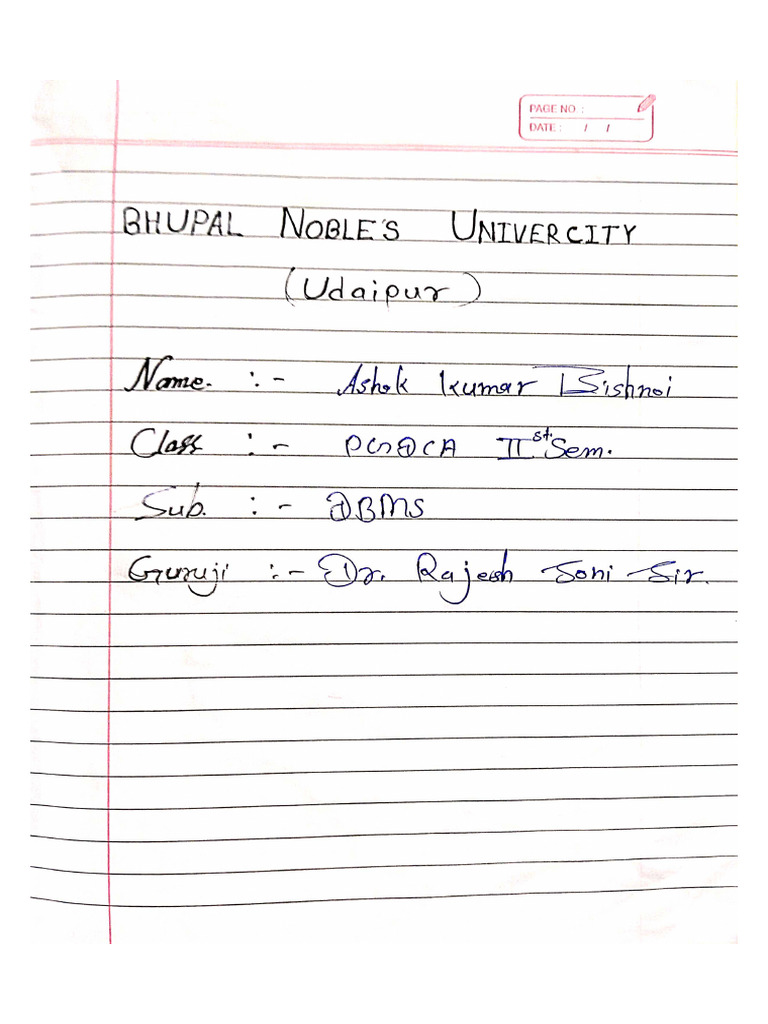 PAGE NO. :
DATE : / /
BHUPAL NOBLE'S UNIVERCITY
(Udaipur)
Name. :- Ashok Kumar Bishnoi
Class :- PGDCA II st Sem.
Sub. :- DBMS
Guruji :- Dr. Rajesh Soni Sir.